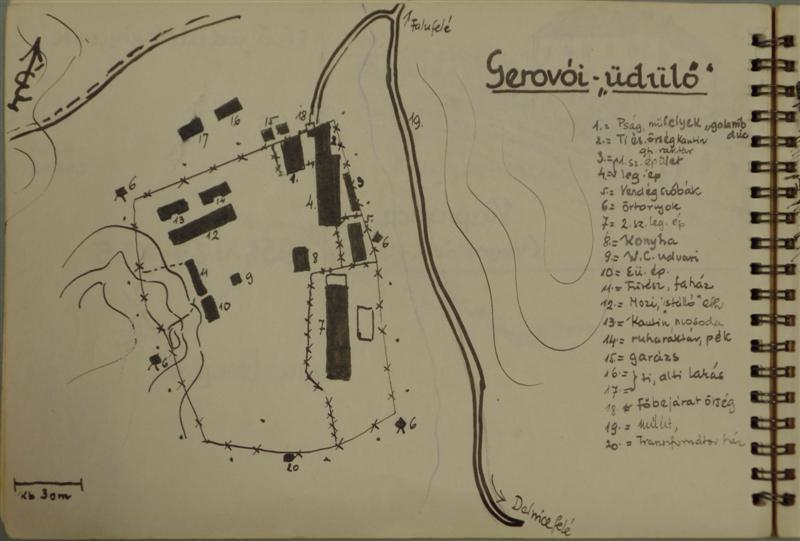 Falufelé
Gerovói-„üdülő"
1.= Pság, műhelyek, galamb
dúc
2.= Ti és. őrség kantin
gh. raktár
3.= M. sz. épület
4.= leg. ép
5.= Vendégszobák
6= őrtornyok
7= 2.sz. leg. ép
8= Konyha
9= W.C. udvari
10= Eü. ép.
11.= Fűrész, faház
12.= Mozi, "istálló"
13= "Kantin", mosoda
14.= ruharaktár, pék
15= garázs
16.= } ti, alti lakás
17.=
18 = főbejárat őrség
19.=
20.= Transformátor ház
16
17
15
18
19.
2
1.
3
4.
5.
6
14
13
12
11
9
8
10
7
6
6
6
20
kb 30m